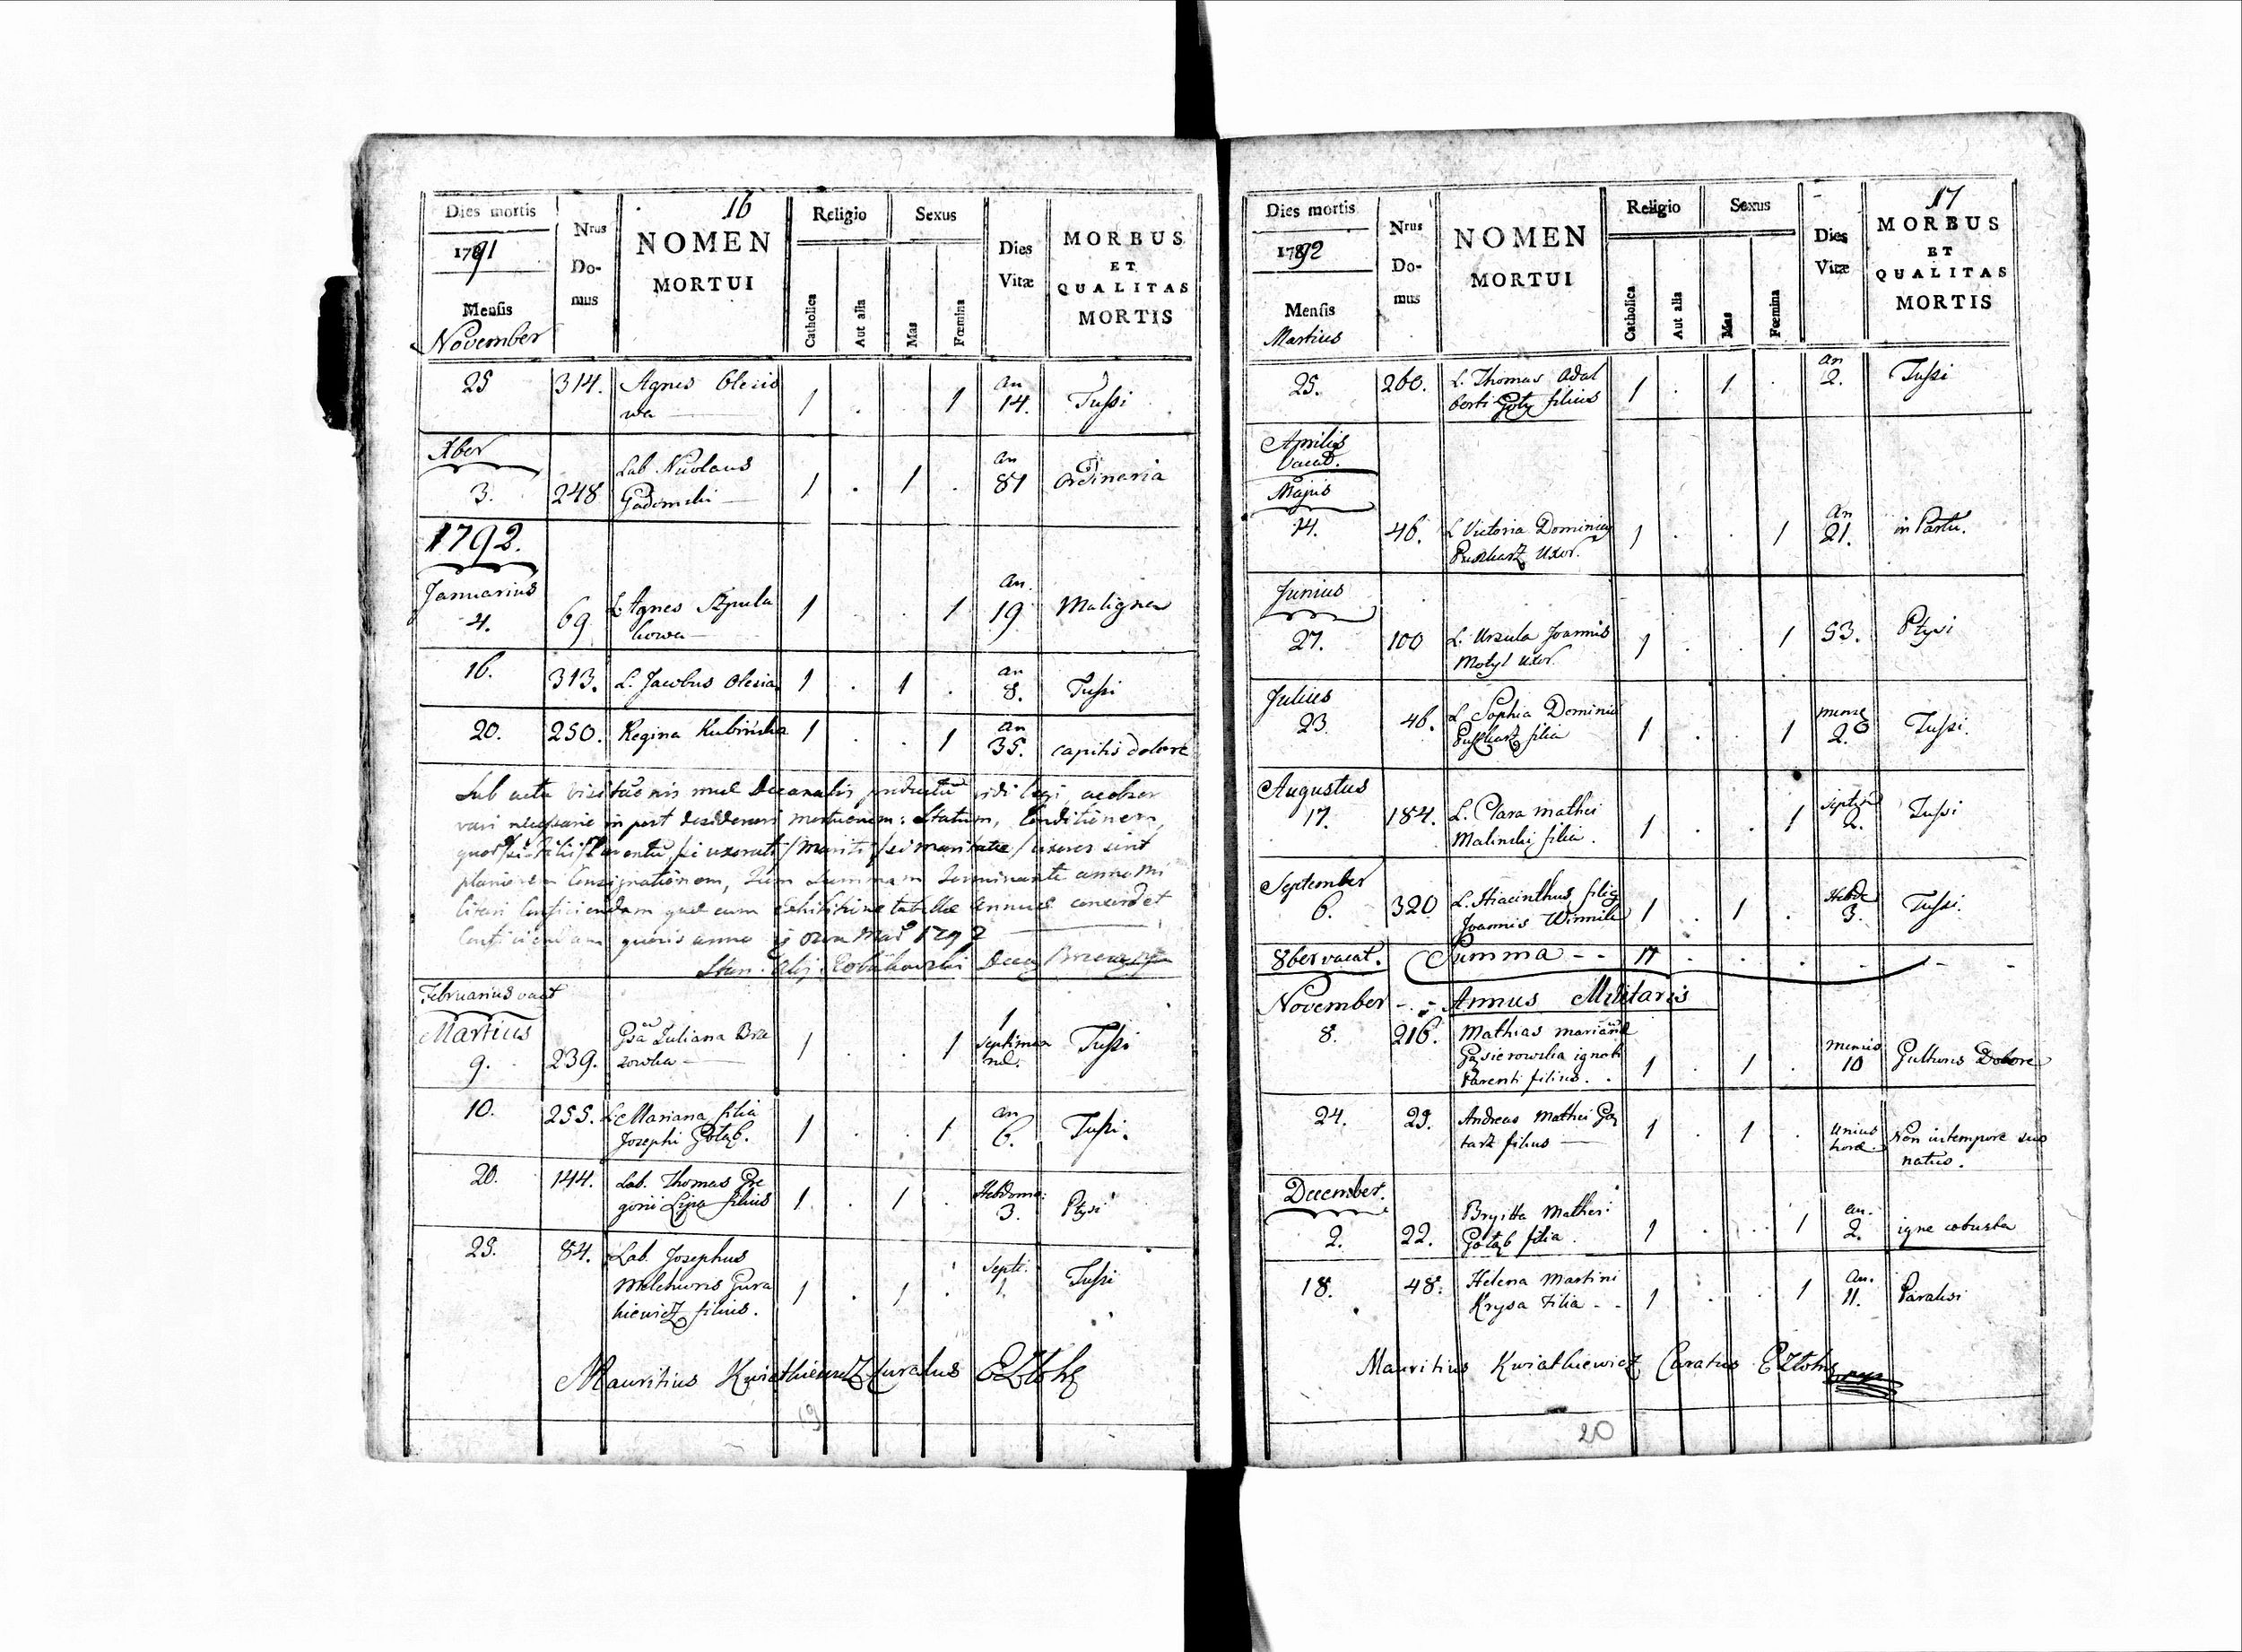 16
Dies mortis
1791
Mensis
November
Nrus
Do-
mus
NOMEN
MORTUI
Religio
Catholica
Aut alia
Sexus
Mas
Fœmina
Dies
Vitæ
MORBUS
ET
QUALITAS
MORTIS
25 314. Agnes Olesio 1 . . 1 an 14. Tussi
wa
Xber
3. 248 Lab Nicolaus 1 . 1 . an 81 Ordinaria
Gadomski
1792.
Januarius
4. 69 L. Agnes Szpula 1 . . 1 an. 19 Maligna
kowa
16. 313. L. Jacobus Olesia 1 . 1 . an 8. Tussi
20. 250. Regina Kubinska 1 . . 1 an 35. capitis dolore
Sub actu visitaōnis meæ Decanalis vidi legi
in post mortuorum: Statum, Conditionem,
quod si filii si uxorati mariti si maritatæ uxores sint
Consignationem, Summam terminante anno mi
litari Conficiendam quæ cum Exhibitione tabellæ annuæ
anno 1792
Februarius vacat
Martius
9. 239. Gsa Juliana Brze 1 . . 1 1 Septimana Tussi
zowska
10. 255. L. Mariana filia 1 . . 1 an 6. Tussi.
Josephi Gołąb.
20. 144. Lab. Thomas Gre 1 . 1 . Hebdoma: 3. Ptysi
gorii Lipa filius
25. 84. Lab. Josephus
Melchioris Gura 1 . 1 . Septi. 1. Tussi
kiewicz filius.
Mauritius Kwiatkiewicz Curatus
19
17
Dies mortis
1792
Mensis
Martius
Nrus
Do-
mus
NOMEN
MORTUI
Religio
Catholica
Aut alia
Sexus
Mas
Fœmina
Dies
Vitæ
MORBUS
ET
QUALITAS
MORTIS
25. 260. L. Thomas Adal 1 . 1 . an 2. Tussi
berti filius
Aprilis
vacat.
Majus
14. 46. L Victoria Dominici 1 . . 1 an 21. in Partu.
Uxor.
Junius
27. 100 L. Urzula Joannis 1 . . 1 53. Ptysi
Motyl uxor.
Julius
23. 46. L Sophia Dominici 1 . . 1 mense 2. Tussi.
filia
Augustus
17. 184. L. Clara mathei 1 . . 1 2. Tussi
Malinski filia.
September
6. 320 L. Hiacinthus filius 1 . 1 . Hebde 3. Tussi.
Joannis
8ber vacat. Summa - - 17 . . . . - -
November - - Annus Militaris
8. 216. Mathias mariannæ
Gąsierowska ignoti 1 . 1 . mensis 10 Gutturis Dolore
Parenti filius. .
24. 23. Andreas Mathei 1 . 1 . unius Non in tempore suo
tarz filius hora natus.
December.
2. 22. Brygitta Mathei 1 . . 1 an. 2. igne cobusta
Gołąb filia.
18. 48. Helena Martini 1 . . 1 an. 11. Paralisi
Krysa filia - -
Mauritius Kwiatkiewicz Curatus
20